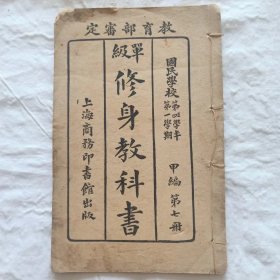 教育部審定
國民學校 第四學年 第一學期 甲編 第七冊
單級
修身教科書
上海商務印書館出版